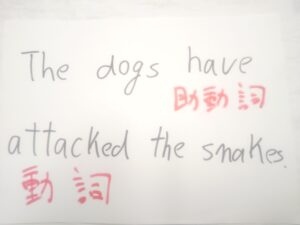 The dogs have
助動詞
attacked the snakes.
動詞